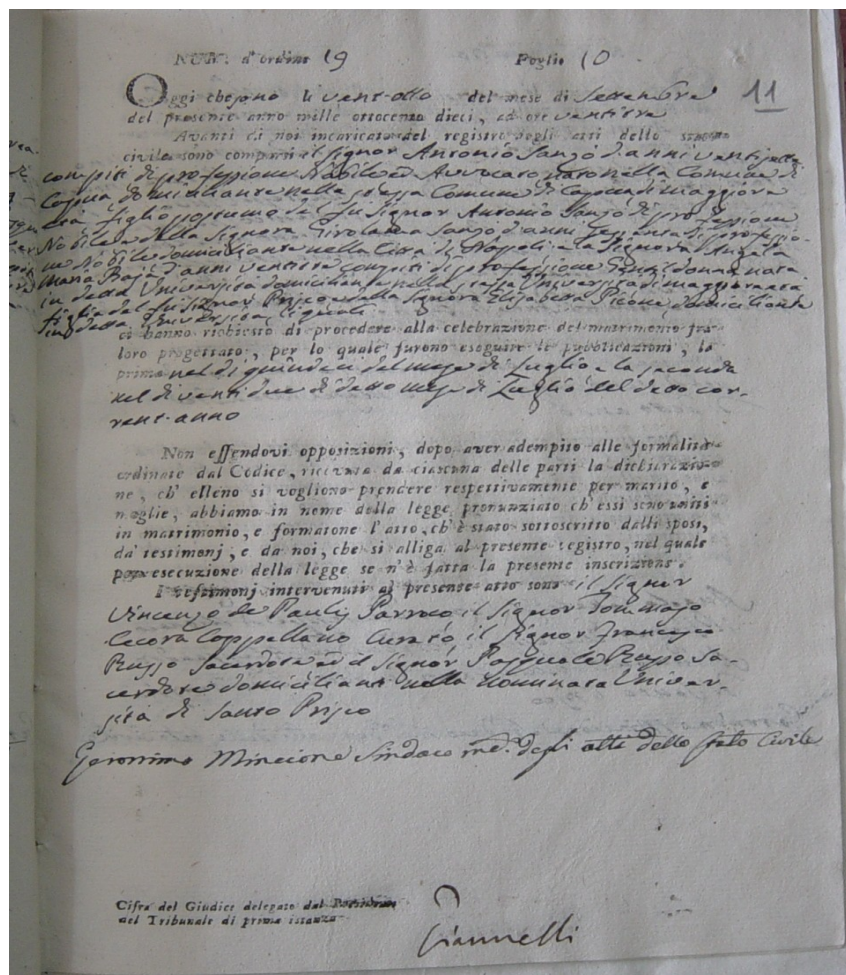 NUM: d'ordine 19 Foglio 10
11
Oggi che sono li vent-otto del mese di Settembre
del presente anno mille ottocento dieci, ad ore ventitre
Avanti di noi incaricato del registro degli atti dello stato
civile sono comparsi il Signor Antonio Sanzò d'anni ventisette
compiti di professione Nobile ed Avvocato nato nella Comune di
Capua domiciliante nella stessa Comune di Capua di maggiore
età figlio postumo del fu Signor Antonio Sanzò di professione
Nobile e della Signora Girolama Sanzò d'anni sessanta di professio-
ne Nobile domiciliante nella Città di Napoli e la Signora Angela
Maria d'anni ventitre compiti di professione Gentildonna nata
in detta Università domiciliante nella stessa Università di maggiore età
figlia del fu Signor Prisco e della Signora Elisabetta Picone domiciliante
in detta Università, i quali
ci hanno richiesto di procedere alla celebrazione del matrimonio fra
loro progettato, per lo quale furono eseguite le pubblicazioni, la
prima nel dì quindici del mese di Luglio e la seconda
nel dì venti due di detto mese di Luglio del detto cor-
rent-anno
Non essendovi opposizioni, dopo aver adempito alle formalità
ordinate dal Codice, ricevuta da ciascuna delle parti la dichiarazio-
ne, ch' elleno si vogliono prendere respettivamente per marito, e
moglie, abbiamo in nome della legge pronunziato ch'essi sono uniti
in matrimonio, e formatone l'atto, ch'è stato sottoscritto dalli sposi,
da' testimonj, e da noi, che si alliga al presente registro, nel quale
per esecuzione della legge se n'è fatta la presente inscrizione.
I testimonj intervenuti al presente atto sono il Signor
Vincenzo de Paulis Parroco il Signor Tommaso
Cecora Coppellano Curato il Signor Francesco
Russo Sacerdote ed il Signor Pasquale Russo Sa-
cerdote domicilianti nella nominata Univer-
sità di Santo Prisco
Geronimo Mincione Sindaco degli atti dello stato Civile
Cifra del Giudice delegato dal Presidente
del Tribunale di prima istanza
Giannelli